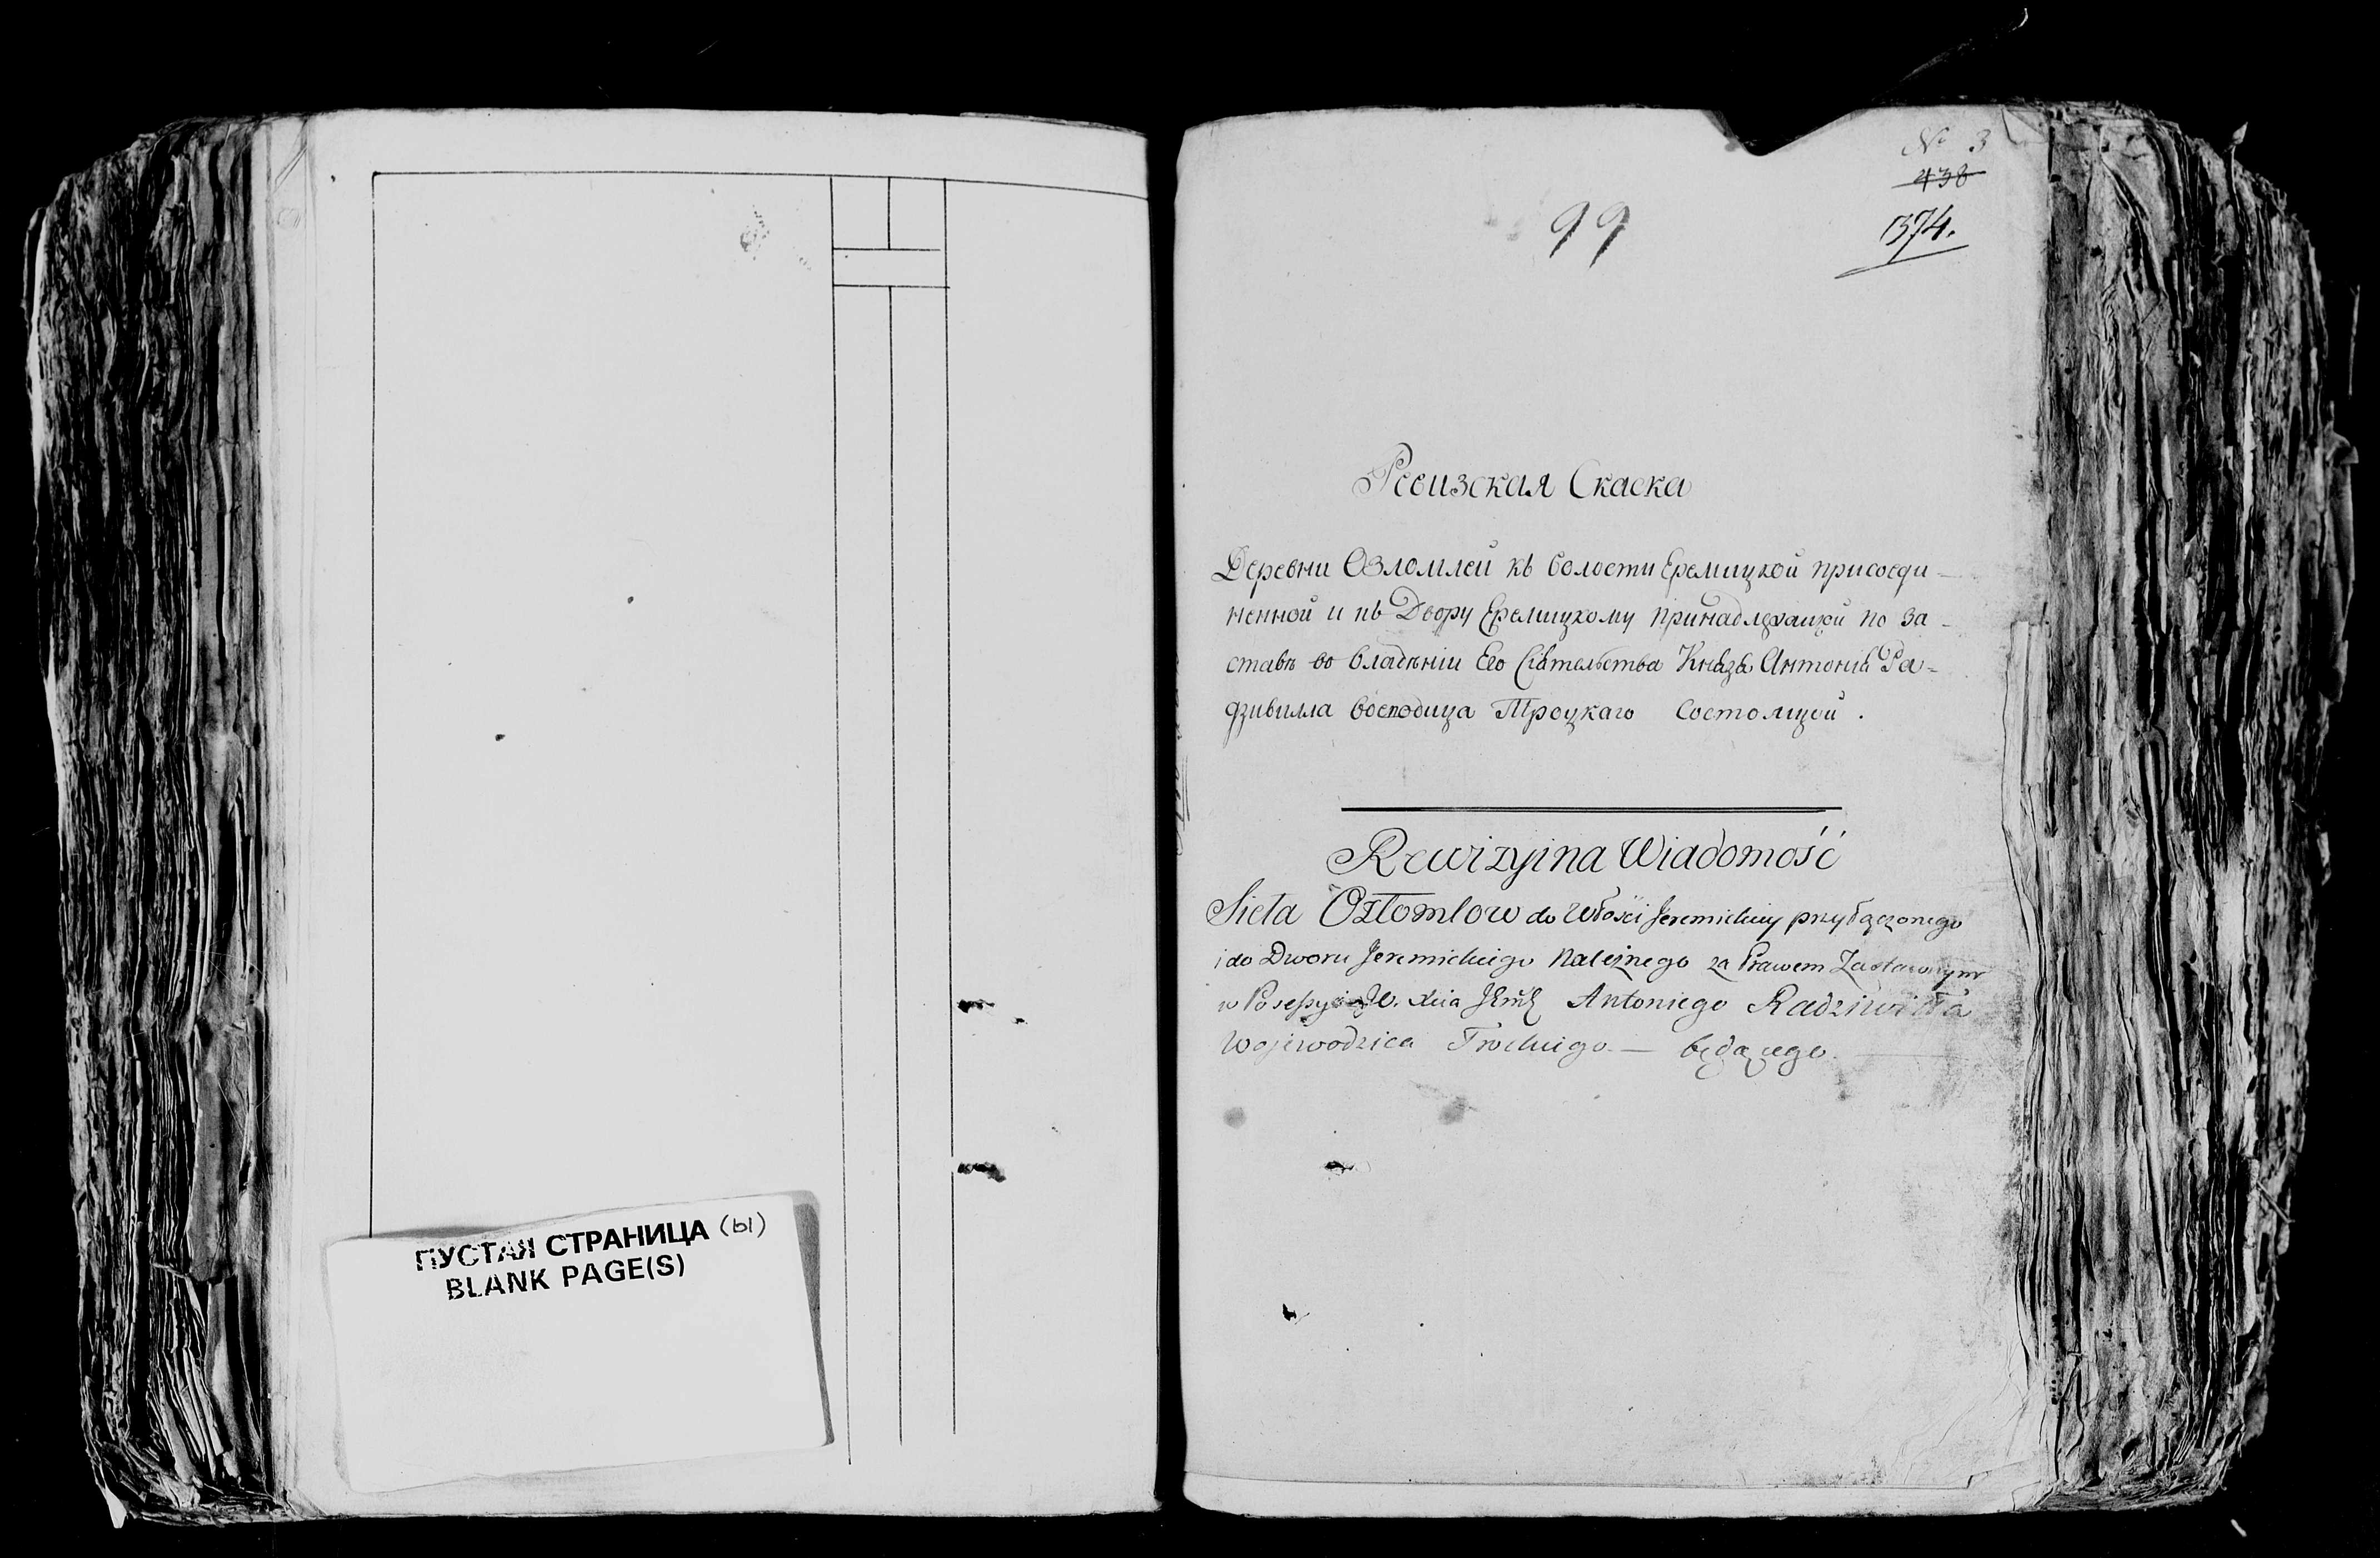 ПУСТАЯ СТРАНИЦА (ы)
BLANK PAGE(S)
№ 3
438
99
1374.
Ревизская Скаска
Деревни Озломлей къ волости Еремицкой присоеди-
ненной и къ Двору Еремицкому принадлежащей по за-
ставѣ во владѣніи Его Сіятельства Князя Антонія Ра-
дзивилла воеводица Троцкаго состоящей.
Rewizyina Wiadomość
Sieła Ozłomlow do Włości Jeremickiey przyłączonego
i do Dworu Jeremickiego Należnego za Prawem Zastawnym
w Possessyi Antoniego Radziwiłła
Wojewodzica Trockiego — będącego